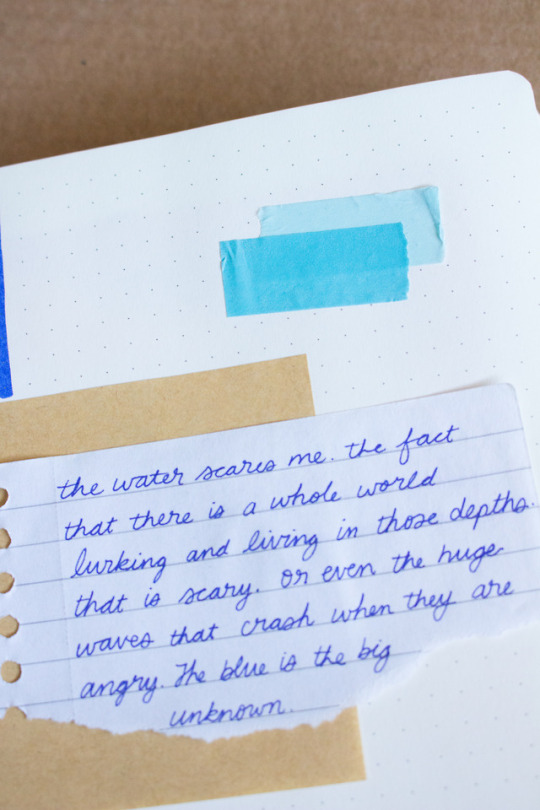 the water scares me. the fact
that there is a whole world
lurking and living in those depths.
that is scary. or even the huge
waves that crash when they are
angry. The blue is the big
unknown.